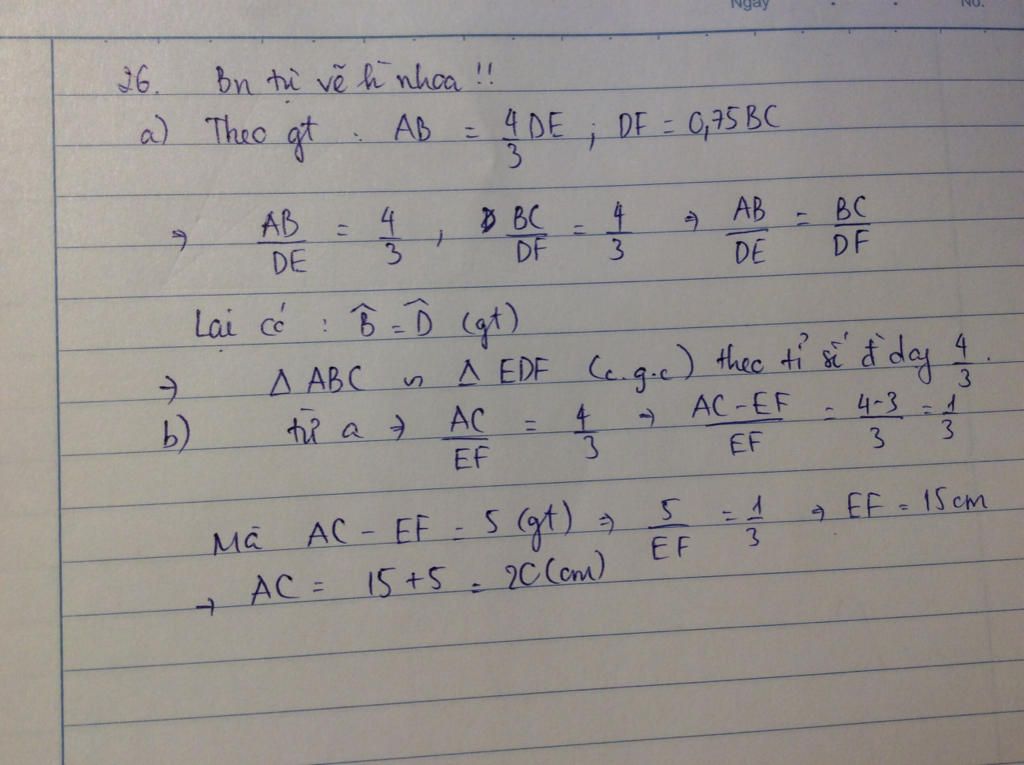 Ngày No.
26. Bn tự vẽ hì nhoa !!
a) Theo gt : AB = 4/3 DE ; DF = 0,75 BC
→ AB/DE = 4/3 , BC/DF = 4/3 → AB/DE = BC/DF
Lại có : B̂ = D̂ (gt)
→ Δ ABC ∽ Δ EDF (c.g.c) theo tỉ số đ dạg 4/3 .
b) từ a → AC/EF = 4/3 → AC-EF/EF = 4-3/3 = 1/3
Mà AC - EF = 5 (gt) → 5/EF = 1/3 → EF = 15cm
→ AC = 15+5 = 20 (cm)